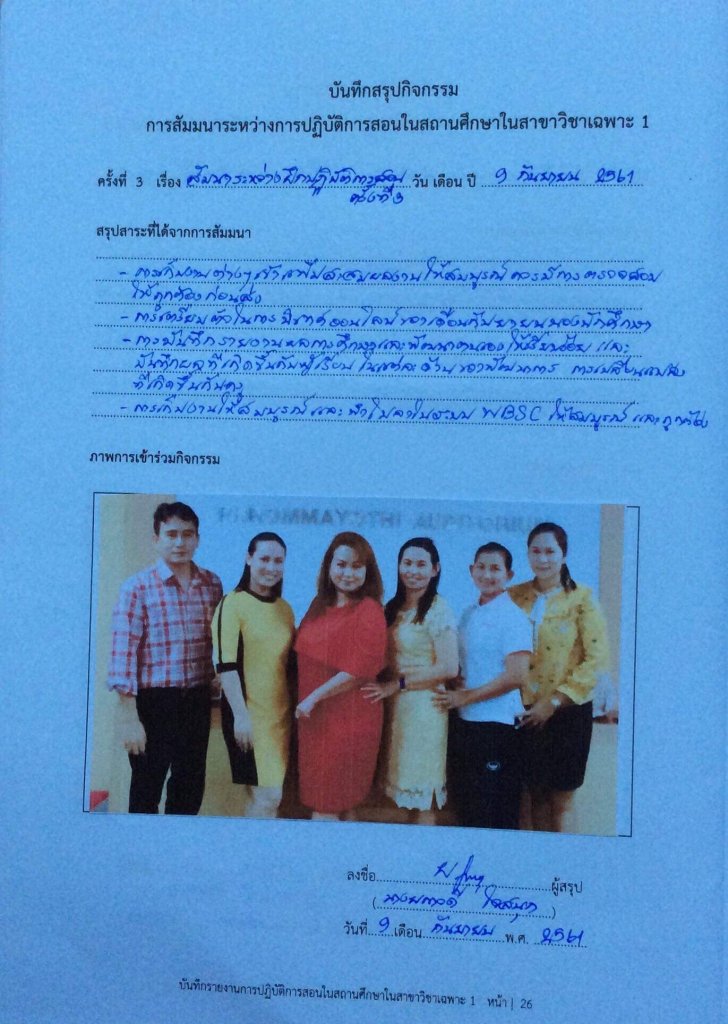 บันทึกสรุปกิจกรรม
การสัมมนาระหว่างการปฏิบัติการสอนในสถานศึกษาในสาขาวิชาเฉพาะ 1
ครั้งที่ 3 เรื่อง สัมมนาระหว่างฝึกปฏิบัติการสอน วัน เดือน ปี 9 กันยายน 2561
ครั้งที่ 3
สรุปสาระที่ได้จากการสัมมนา
- การเก็บงานต่างๆเข้าแฟ้มสะสมผลงาน ให้สมบูรณ์ ควรมีการตรวจสอบ
ให้ถูกต้องก่อนส่ง
- การเตรียมตัวในการ ออนไลน์ของเดือนกันยายนของนักศึกษา
- การบันทึกรายงานผลการศึกษาและพัฒนาตนเอง ให้เรียบร้อย และ
บันทึกผลที่เกิดขึ้นกับผู้เรียน ในแต่ละด้านของพัฒนาการ การเปลี่ยนแปลง
ที่เกิดขึ้นกับครู
- การเก็บงานให้สมบูรณ์และ ในระบบ WBSC ให้สมบูรณ์ และถูกต้อง
ภาพการเข้าร่วมกิจกรรม
ลงชื่อ ผู้สรุป
วันที่ 9 เดือน กันยายน พ.ศ. 2561
บันทึกรายงานการปฏิบัติการสอนในสถานศึกษาในสาขาวิชาเฉพาะ 1 หน้า | 26